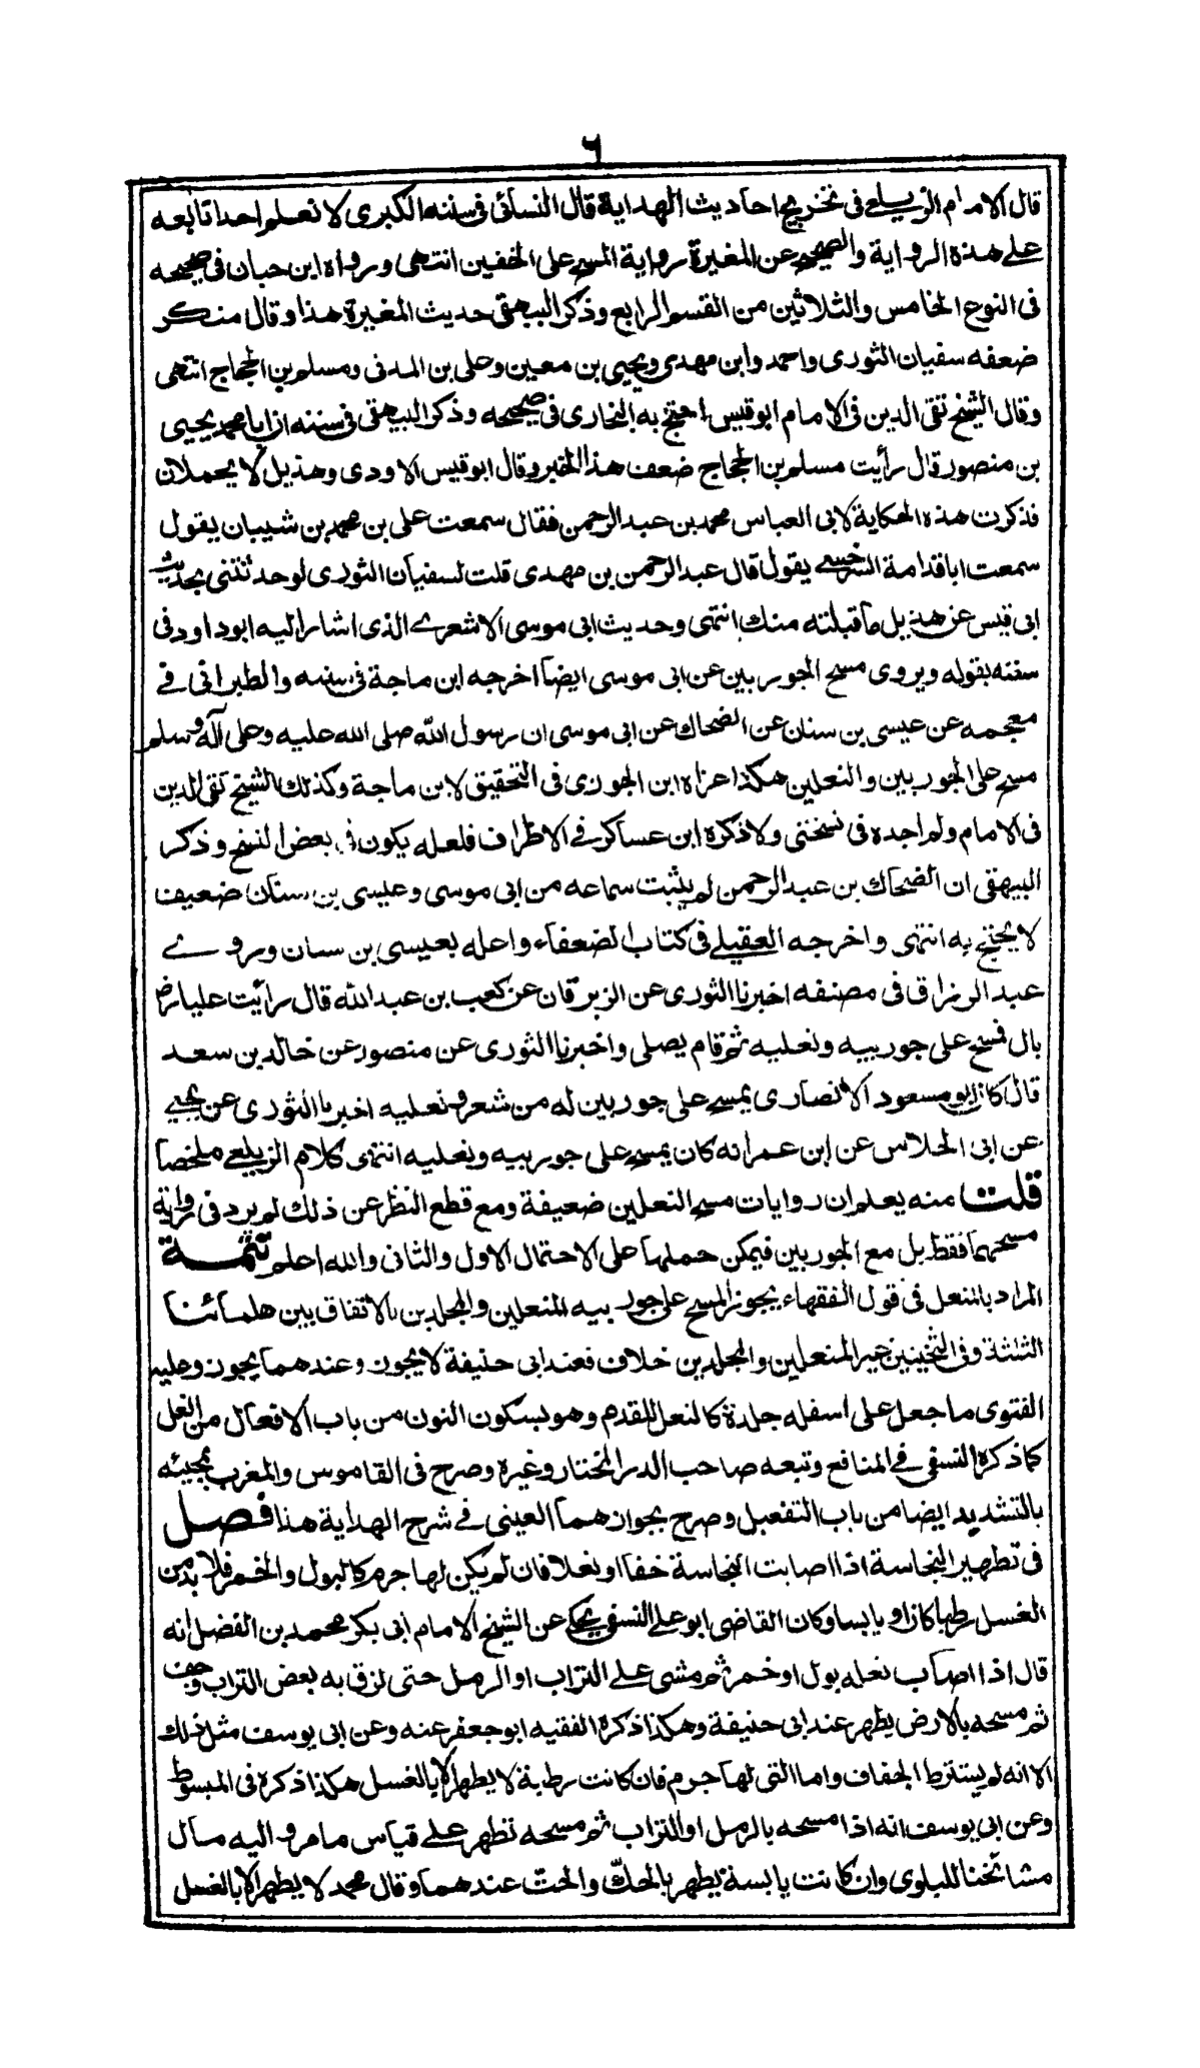 ٦
قال الامام الزيلعي في تخريج احاديث الهداية قال النسائي في سننه الكبرى لا نعلم احدا تابعه
على هذه الرواية والصحيح عن المغيرة رواية المسح على الخفين انتهى ورواه ابن حبان في صحيحه
في النوع الخامس والثلاثين من القسم الرابع وذكر البيهقي حديث المغيرة هذا وقال منكر
ضعفه سفيان الثوري واحمد وابن مهدي ويحيى بن معين وعلي بن المدني ومسلم بن الحجاج انتهى
وقال الشيخ تقي الدين في الامام ابو قيس احتج به البخاري في صحيحه وذكر البيهقي في سننه ان ابا محمد يحيى
بن منصور قال رأيت مسلم بن الحجاج ضعف هذا الخبر وقال ابو قيس الاودي وهذيل لا يحملان
فذكرت هذه الحكاية لابي العباس محمد بن عبد الرحمن فقال سمعت علي بن محمد بن شيبان يقول
سمعت ابا قدامة السرخسي يقول قال عبد الرحمن بن مهدي قلت لسفيان الثوري لو حدثتني بحديث
ابي قيس عن هذيل ما قبلته منك انتهى وحديث ابي موسى الاشعري الذي اشار اليه ابو داود في
سننه بقوله ويروى مسح الجوربين عن ابي موسى ايضا اخرجه ابن ماجة في سننه والطبراني في
معجمه عن عيسى بن سنان عن الضحاك عن ابي موسى ان رسول الله صلى الله عليه وعلى آله وسلم
مسح على الجوربين والنعلين هكذا عزاه ابن الجوزي في التحقيق لابن ماجة وكذلك الشيخ تقي الدين
في الامام ولم اجده في نسختي ولا ذكره ابن عساكر في الاطراف فلعله يكون في بعض النسخ وذكر
البيهقي ان الضحاك بن عبد الرحمن لم يثبت سماعه من ابي موسى وعيسى بن سنان ضعيف
لا يحتج به انتهى واخرجه العقيلي في كتاب الضعفاء واعله بعيسى بن سنان وروى
عبد الرزاق في مصنفه اخبرنا الثوري عن الزبرقان عن كعب بن عبد الله قال رائيت عليا رض
بال فمسح على جوربيه ونعليه ثم قام يصلي واخبرنا الثوري عن منصور عن خالد بن سعد
قال كان ابو مسعود الانصاري يمسح على جوربين له من شعر ونعليه اخبرنا الثوري عن يحيى
عن ابي الخلاس عن ابن عمر انه كان يمسح على جوربيه ونعليه انتهى كلام الزيلعي ملخصا
قلت منه يعلم ان روايات مسح النعلين ضعيفة ومع قطع النظر عن ذلك لم يرد في رواية
مسحهما فقط بل مع الجوربين فيمكن حملها على الاحتمال الاول والثاني والله اعلم تتمة
المراد بالمنعل في قول الفقهاء يجوز المسح على جوربيه المنعلين والمجلدين بالاتفاق بين علمائنا
الثلثة وفي الثخينين غير المنعلين والمجلدين خلاف فعند ابي حنيفة لا يجوز وعندهما يجوز وعليه
الفتوى ما جعل على اسفله جلدة كالنعل للقدم وهو بسكون النون من باب الافعال من النعل
كما ذكره النسفي في المنافع وتبعه صاحب الدر المختار وغيره وصرح في القاموس والمغرب بمجيئه
بالتشديد ايضا من باب التفعيل وصرح بجوازهما العيني في شرح الهداية هذا فصل
في تطهير النجاسة اذا اصابت النجاسة خفا او نعلا فان لم يكن لها جرم كالبول والخمر فلا بد من
الغسل رطبا كان او يابسا وكان القاضي ابو علي النسفي يحكي عن الشيخ الامام ابي بكر محمد بن الفضل انه
قال اذا اصاب نعله بول او خمر ثم مشى على التراب او الرمل حتى لزق به بعض التراب وجف
ثم مسحه بالارض يطهر عند ابي حنيفة وهكذا ذكره الفقيه ابو جعفر عنه وعن ابي يوسف مثل ذلك
الا انه لم يشترط الجفاف واما التي لها جرم فان كانت رطبة لا يطهر الا بالغسل هكذا ذكره في المبسوط
وعن ابي يوسف انه اذا مسحه بالرمل او التراب ثم مسحه تطهر على قياس ما مر واليه مال
مشائخنا للبلوى وان كانت يابسة يطهر بالحك والحت عندهما وقال محمد لا يطهر الا بالغسل